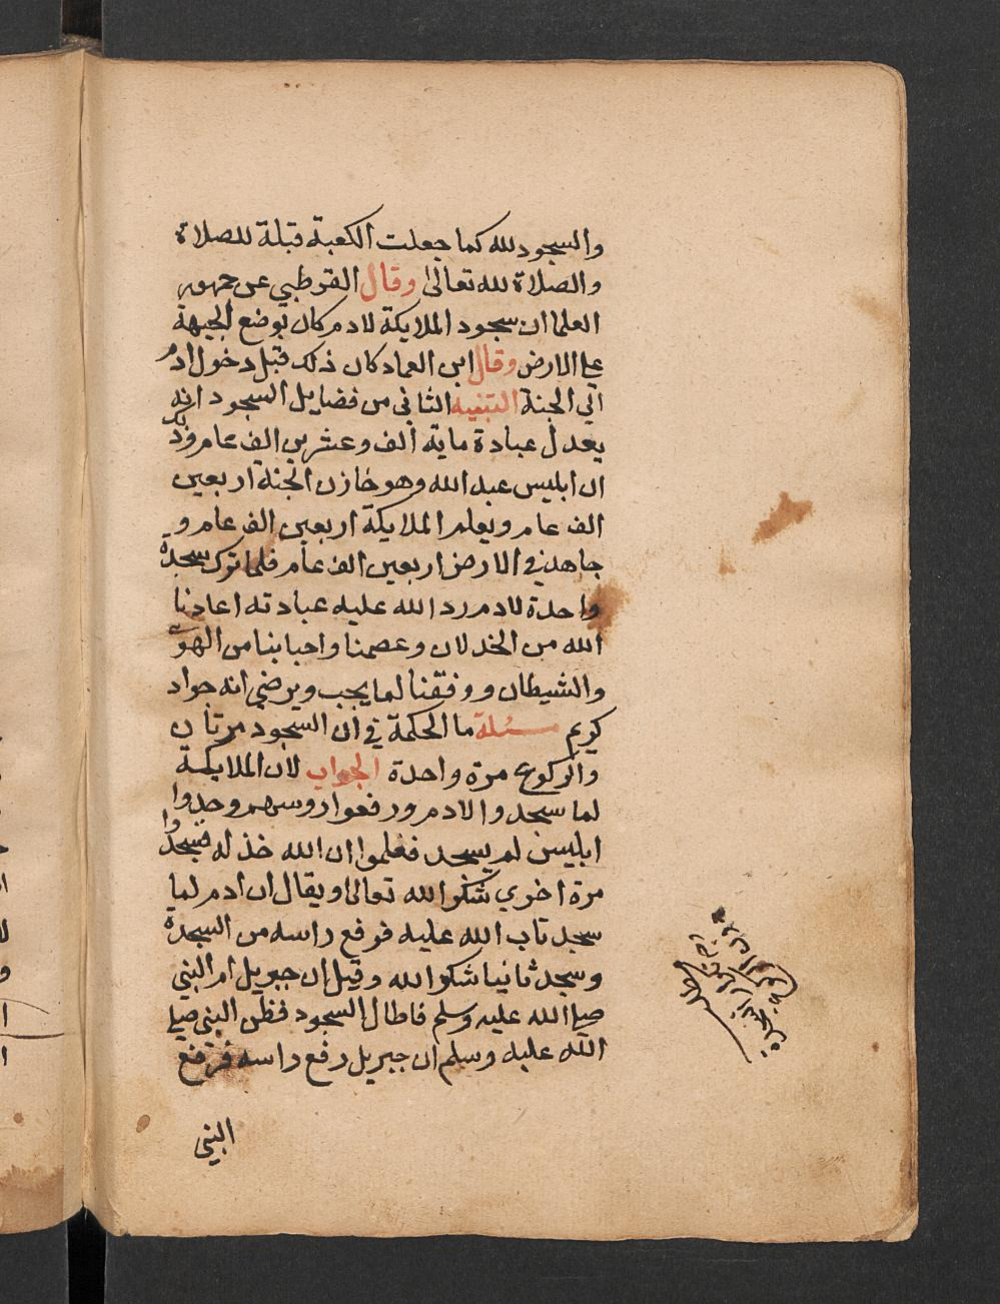 والسجود لله كما جعلت الكعبة قبلة للصلاة
والصلاة لله تعالى وقال القرطبي عن جمهور
العلما ان سجود الملايكة لادم كان بوضع الجبهة
علي الارض وقال ابن العماد كان ذلك قبل دخول ادم
الي الجنة التنبيه الثاني من فضايل السجود انه
يعدل عبادة ماية الف وعشرين الف عام وذلك
ان ابليس عبد الله وهو خازن الجنة اربعين
الف عام ويعلم الملايكة اربعين الف عام و
جاهد في الارض اربعين الف عام فلما ترك سجدة
واحدة لادم رد الله عليه عبادته اعاذنا
الله من الخذلان وعصمنا واحبابنا من الهوى
والشيطان ووفقنا لما يجب ويرضي انه جواد
كريم مسئلة ما الحكمة في ان السجود مرتان
والركوع مرة واحدة الجواب لان الملايكة
لما سجدوا لادم ورفعوا روسهم وجدوا
ابليس لم يسجد فعلموا ان الله خذله فسجدوا
مرة اخري شكرا لله تعالى او يقال ان ادم لما
سجد تاب الله عليه فرفع راسه من السجدة
وسجد ثانيا شكرا لله وقيل ان جبريل ام النبي
صلي الله عليه وسلم فاطال السجود فظن النبي صلي
الله عليه وسلم ان جبريل رفع راسه فرفع
النبي